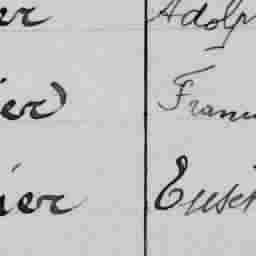 er Adolp
ier Fran
ier Euse